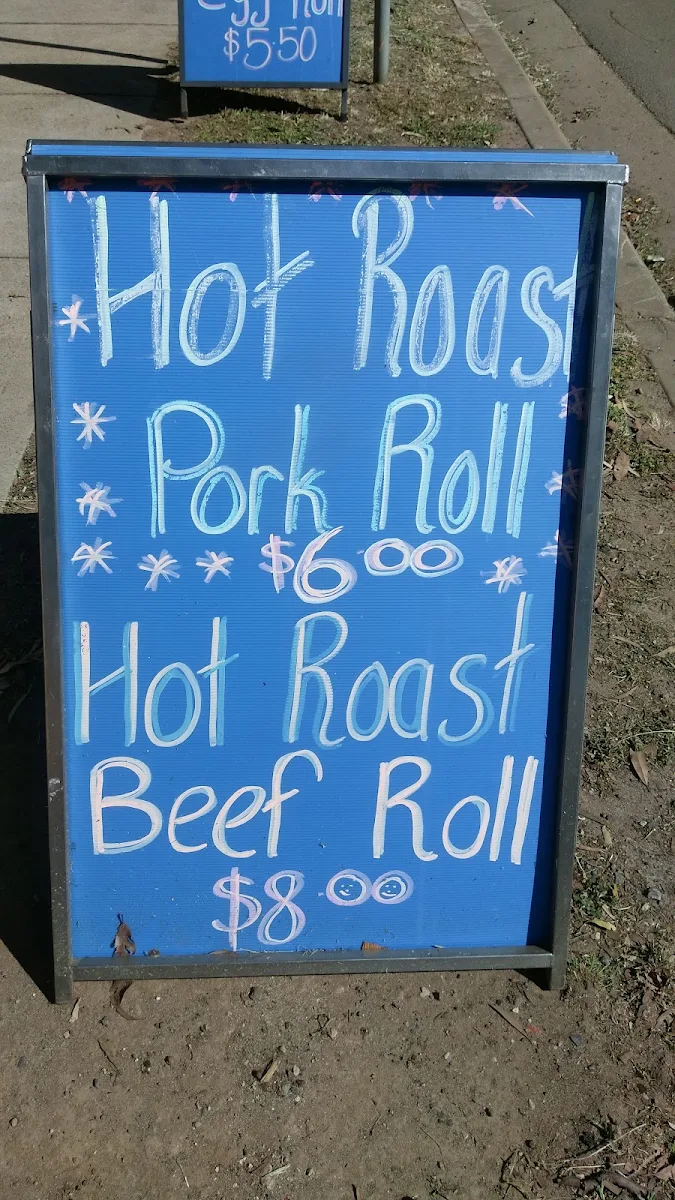 Egg Roll
$5.50
Hot Roast
Pork Roll
$6.00
Hot Roast
Beef Roll
$8.00